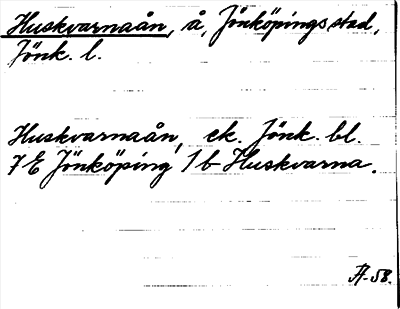 Huskvarnaån, å, Jönköpings stad,
Jönk. l.
Huskvarnaån, ek. Jönk. bl.
7 E Jönköping 1 b Huskvarna.
A-58.